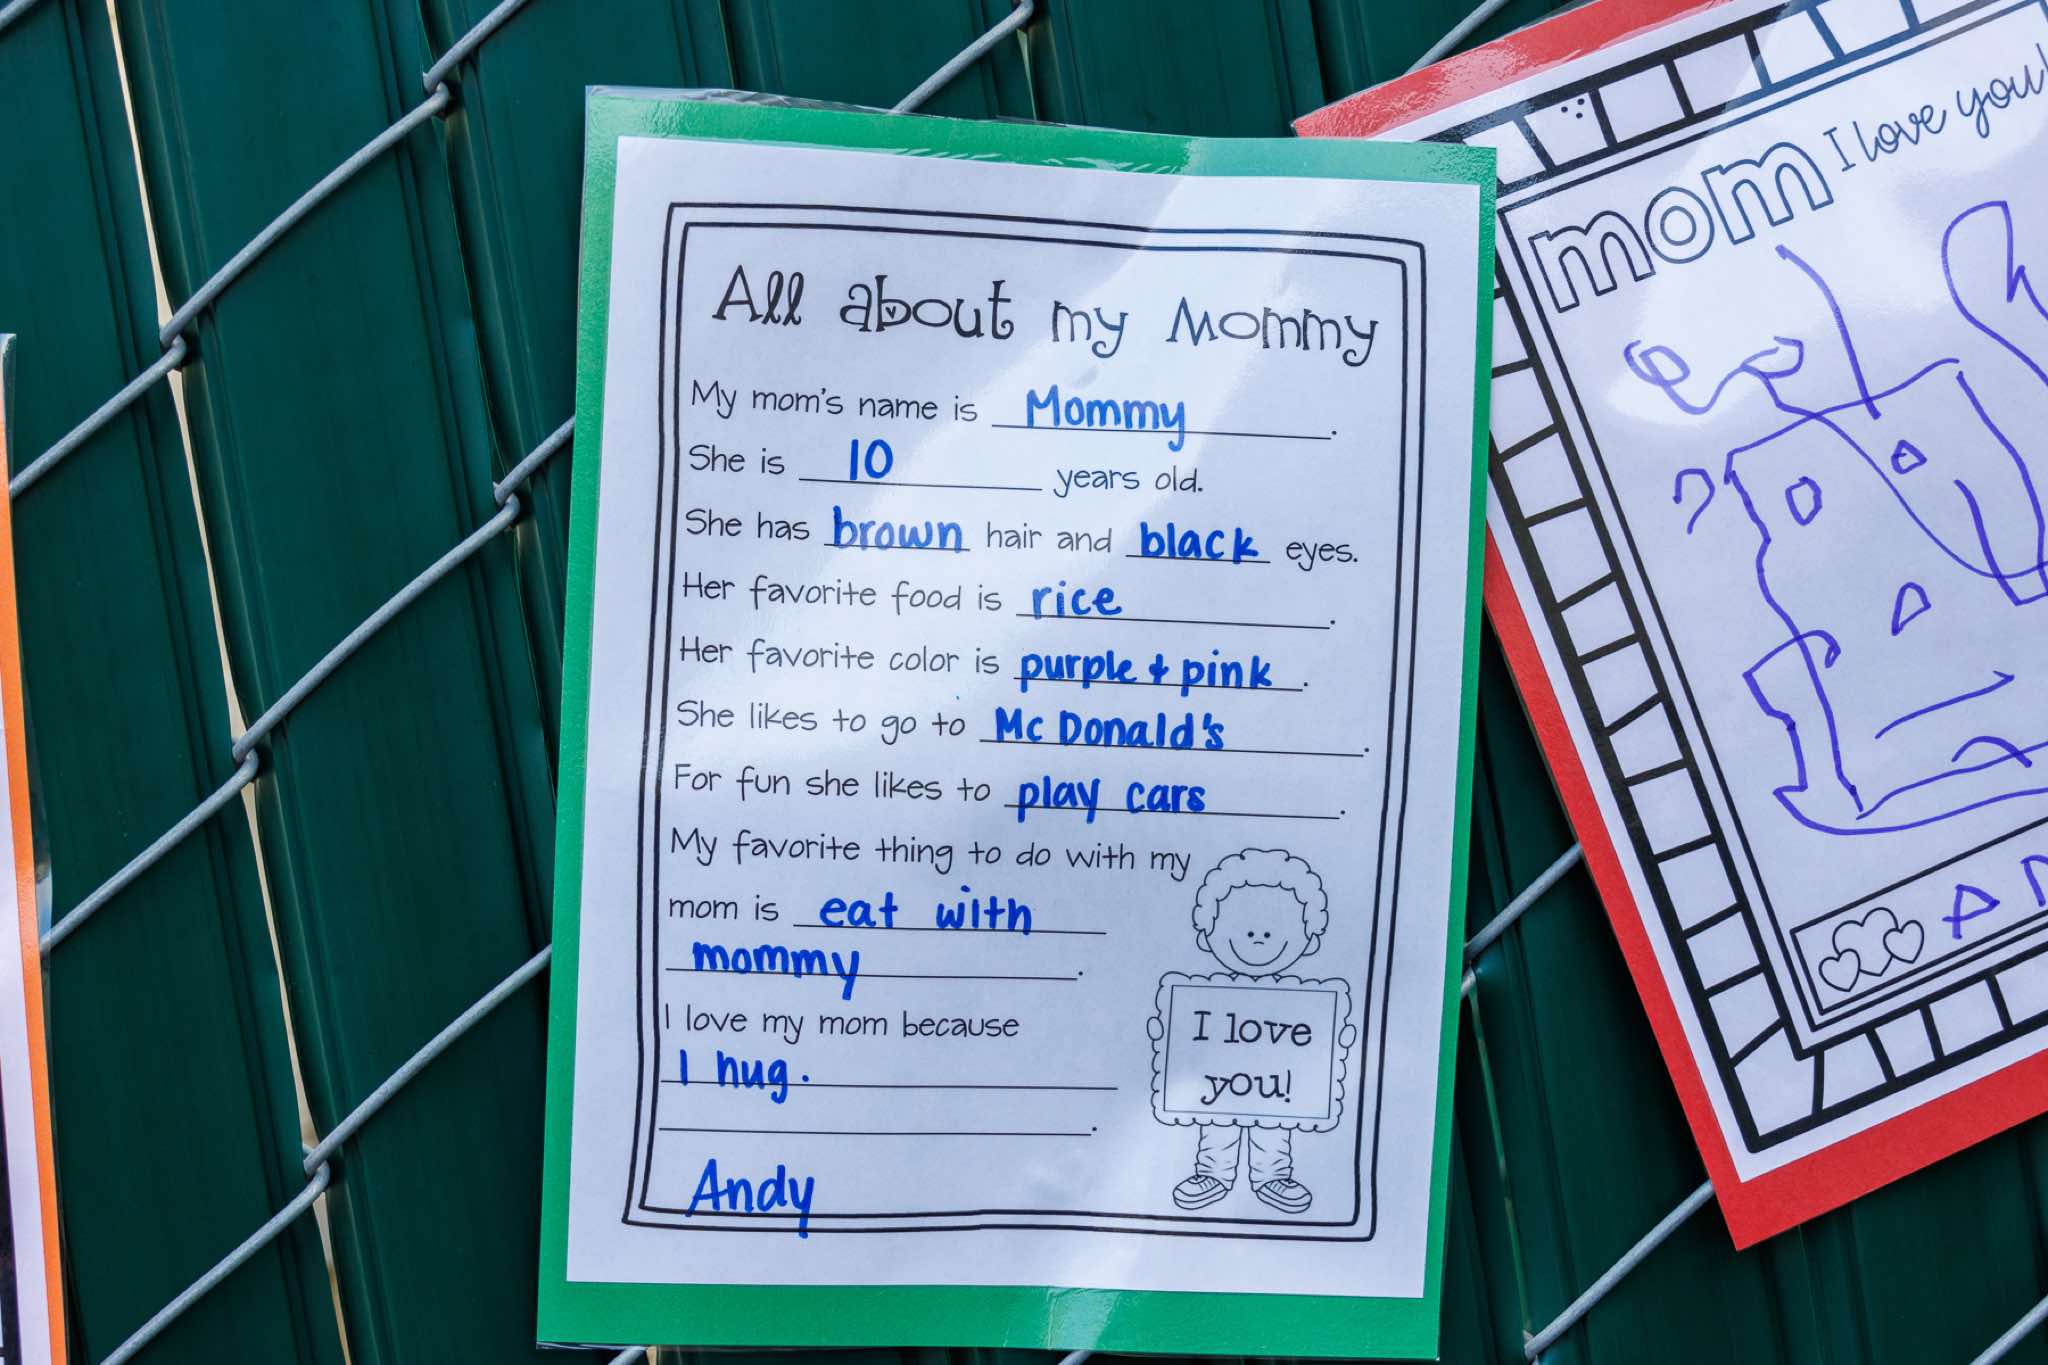 All about my Mommy
My mom's name is Mommy.
She is 10 years old.
She has brown hair and black eyes.
Her favorite food is rice.
Her favorite color is purple + pink.
She likes to go to McDonald's.
For fun she likes to play cars.
My favorite thing to do with my
mom is eat with
mommy.
I love my mom because
I hug.
.
Andy
I love
you!
mom I love you!
A